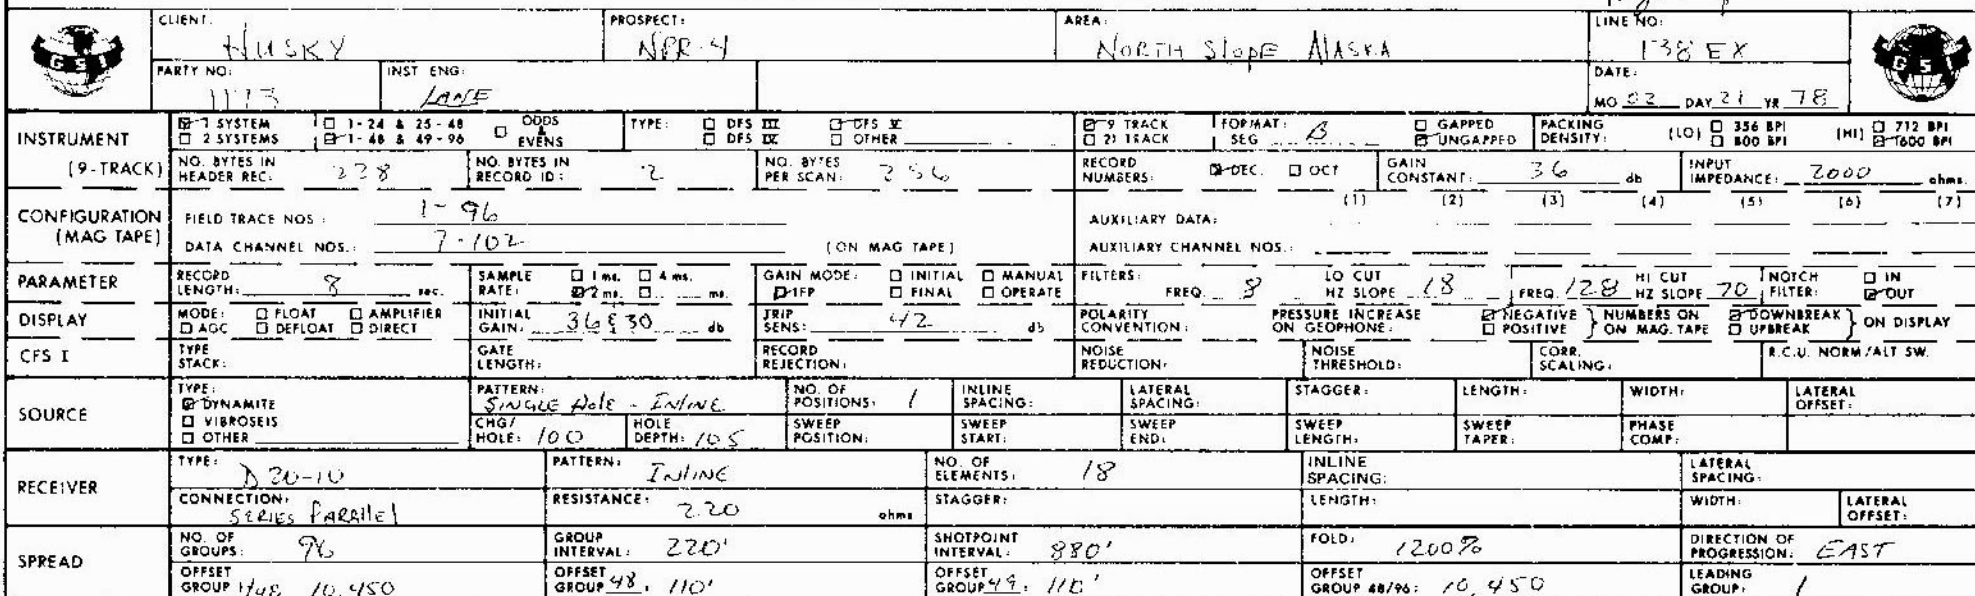 CLIENT: HUSKY PROSPECT: NPR-4 AREA: NORTH SLOPE ALASKA LINE NO: 138 EX
GSI GSI
PARTY NO: 1173 INST ENG: LANE DATE: MO 02 DAY 21 YR 78
INSTRUMENT 1 SYSTEM 1-24 & 25-48 ODDS & EVENS TYPE: DFS III DFS V 9 TRACK FORMAT: B GAPPED PACKING (LO) 356 BPI (HI) 712 BPI
2 SYSTEMS 1-48 & 49-96 DFS IV OTHER 21 TRACK SEG UNGAPPED DENSITY: 800 BPI 1600 BPI
(9-TRACK) NO. BYTES IN HEADER REC: 228 NO. BYTES IN RECORD ID: 2 NO. BYTES PER SCAN: 256 RECORD NUMBERS: DEC. OCT GAIN CONSTANT: 36 db INPUT IMPEDANCE: 2000 ohms.
CONFIGURATION FIELD TRACE NOS: 1-96 AUXILIARY DATA: (1) (2) (3) (4) (5) (6) (7)
(MAG TAPE) DATA CHANNEL NOS.: 7-102 (ON MAG TAPE) AUXILIARY CHANNEL NOS.:
PARAMETER RECORD LENGTH: 8 sec. SAMPLE RATE: 1 ms. 4 ms. 2 ms. ms. GAIN MODE: INITIAL MANUAL IFP FINAL OPERATE FILTERS: FREQ. 8 LO CUT HZ SLOPE 18 FREQ. 128 HI CUT HZ SLOPE 70 NOTCH FILTER: IN OUT
DISPLAY MODE: FLOAT AMPLIFIER AGC DEFLOAT DIRECT INITIAL GAIN: 36 & 30 db TRIP SENS: 42 db POLARITY CONVENTION: PRESSURE INCREASE ON GEOPHONE: NEGATIVE POSITIVE NUMBERS ON MAG. TAPE DOWNBREAK UPBREAK ON DISPLAY
CFS I TYPE STACK: GATE LENGTH: RECORD REJECTION: NOISE REDUCTION: NOISE THRESHOLD: CORR. SCALING: R.C.U. NORM/ALT SW.
SOURCE TYPE: DYNAMITE PATTERN: SINGLE Hole - INLINE NO. OF POSITIONS: 1 INLINE SPACING: LATERAL SPACING: STAGGER: LENGTH: WIDTH: LATERAL OFFSET:
VIBROSEIS OTHER CHG/HOLE: 100 HOLE DEPTH: 105 SWEEP POSITION: SWEEP START: SWEEP END: SWEEP LENGTH: SWEEP TAPER: PHASE COMP:
RECEIVER TYPE: D 20-10 PATTERN: INLINE NO. OF ELEMENTS: 18 INLINE SPACING: LATERAL SPACING:
CONNECTION: SERIES PARAllEl RESISTANCE: 220 ohms STAGGER: LENGTH: WIDTH: LATERAL OFFSET:
SPREAD NO. OF GROUPS: 96 GROUP INTERVAL: 220' SHOTPOINT INTERVAL: 880' FOLD: 1200% DIRECTION OF PROGRESSION: EAST
OFFSET GROUP 1/48 10,450 OFFSET GROUP 48: 110' OFFSET GROUP 49: 110' OFFSET GROUP 48/96: 10,450 LEADING GROUP: 1